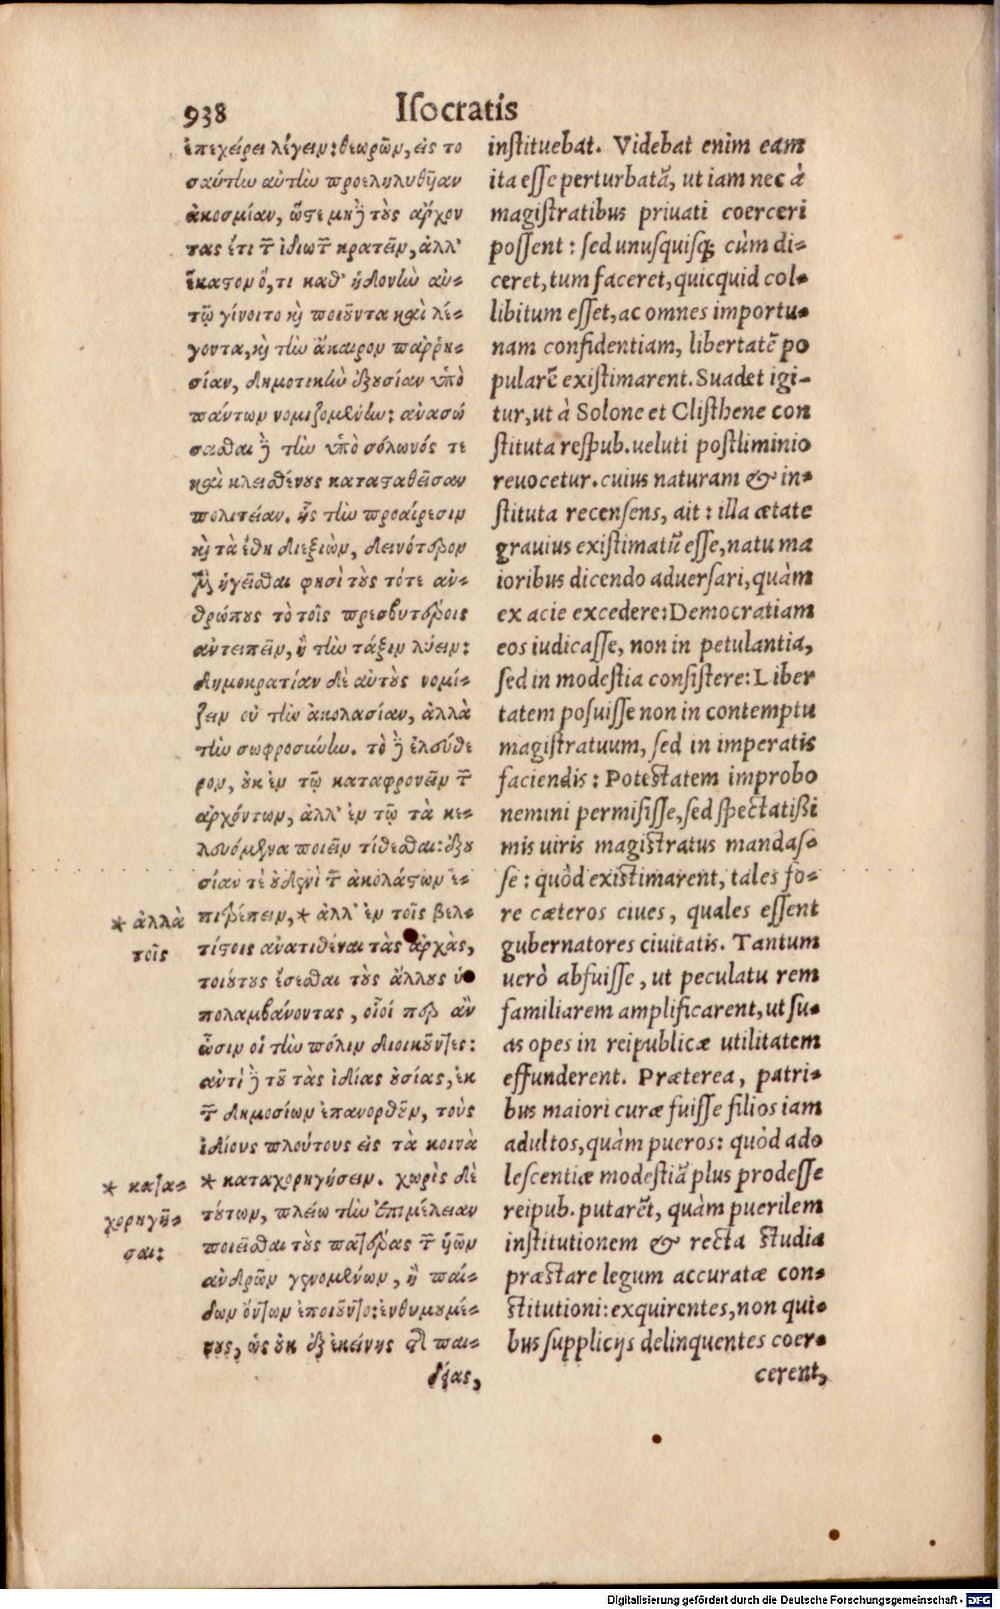 938 Iſocratis
ἐπεχείρει λέγειν: θεωρῶν, εἰς το
σαύτην αὐτὴν προεληλυθῆαν
ἀκοσμίαν, ὥστε μὴ τοὺς ἄρχον
τας ἔτι τ̃ ἰδιωτ̃ κρατεῖν, ἀλλ'
ἕκαστον ὅ, τι καθ' ἡδονὴν αὐ-
τῷ γίνοιτο καὶ ποιοῦντα καὶ λέ-
γοντα, καὶ τὴν ἄκαιρον παῤῥη-
σίαν, δημοτικὴν ἐξουσίαν ὑπὸ
πάντων νομιζομένην: ἀνασώ
σασθαι ἢ τὴν ὑπὸ σόλωνός τε
καὶ κλεισθένους κατασταθεῖσαν
πολιτείαν. ἧς τὴν προαίρεσιν
καὶ τὰ ἔθη διεξιὼν, δεινότερον
μὲν ἡγεῖσθαι φησὶ τοὺς τότε ἀν-
θρώπους τὸ τοῖς πρεσβυτέροις
ἀντειπεῖν, ἢ τὴν τάξιν λύειν:
δημοκρατίαν δὲ αὐτοὺς νομί-
ζειν οὐ τὴν ἀκολασίαν, ἀλλὰ
τὴν σωφροσύνην. τὸ ἢ ἐλεύθε
ρον, οὐκ ἐν τῷ καταφρονεῖν τ̃
ἀρχόντων, ἀλλ' ἐν τῷ τὰ κε-
λευόμενα ποιεῖν τίθεσθαι: ἐξου
σίαν τὲ οὐδενὶ τ̃ ἀκολάστων ἐ-
πιτρέπειν, * ἀλλ' ἐν τοῖς βελ-
τίστοις ἀνατιθέναι τὰς ἀρχὰς,
τοιούτους ἔσεσθαι τοὺς ἄλλους ὑ-
πολαμβάνοντας, οἷοί περ ἂν
ὦσιν οἱ τὴν πόλιν διοικοῦντες:
ἀντὶ ἢ τοῦ τὰς ἰδίας οὐσίας, ἐκ
τ̃ δημοσίων ἐπανορθοῦν, τοὺς
ἰδίους πλούτους εἰς τὰ κοινὰ
* καταχορηγήσειν. χωρὶς δὲ
τούτων, πλείω τὴν ἐπιμέλειαν
ποιεῖσθαι τοὺς πατέρας τ̃ ὑῶν
ἀνδρῶν γενομένων, ἢ παί-
δων ὄντων ἐποιοῦντο: ἐνθυμουμέ-
νους, ὡς οὐκ ἐξ ἐκείνης τῆς παι-
δείας,
* ἀλλὰ
τοῖς
* κατα-
χορηγῆ-
σαι:
inſtituebat. Videbat enim eam
ita eſſe perturbatã, ut iam nec à
magiſtratibus priuati coerceri
poſſent: ſed unuſquiſq; cùm di-
ceret, tum faceret, quicquid col-
libitum eſſet, ac omnes importu-
nam confidentiam, libertatẽ po
pularẽ exiſtimarent. Suadet igi-
tur, ut à Solone et Cliſthene con
ſtituta reſpub. ueluti poſtliminio
reuocetur. cuius naturam & in-
ſtituta recenſens, ait: illa ætate
grauius exiſtimatũ eſſe, natu ma
ioribus dicendo aduerſari, quàm
ex acie excedere: Democratiam
eos iudicaſſe, non in petulantia,
ſed in modeſtia conſiſtere: Liber
tatem poſuiſſe non in contemptu
magiſtratuum, ſed in imperatis
faciendis: Poteſtatem improbo
nemini permiſiſſe, ſed ſpectatiſſi
mis uiris magiſtratus mandaſ-
ſe: quòd exiſtimarent, tales fo-
re cæteros ciues, quales eſſent
gubernatores ciuitatis. Tantum
uerò abfuiſſe, ut peculatu rem
familiarem amplificarent, ut ſu-
as opes in reipublicæ utilitatem
effunderent. Præterea, patri-
bus maiori curæ fuiſſe filios iam
adultos, quàm pueros: quòd ado
leſcentiæ modeſtiã plus prodeſſe
reipub. putarẽt, quàm puerilem
inſtitutionem & recta ſtudia
præſtare legum accuratæ con-
ſtitutioni: exquirentes, non qui-
bus ſupplicijs delinquentes coer-
cerent,
Digitalisierung gefördert durch die Deutsche Forschungsgemeinschaft - DFG